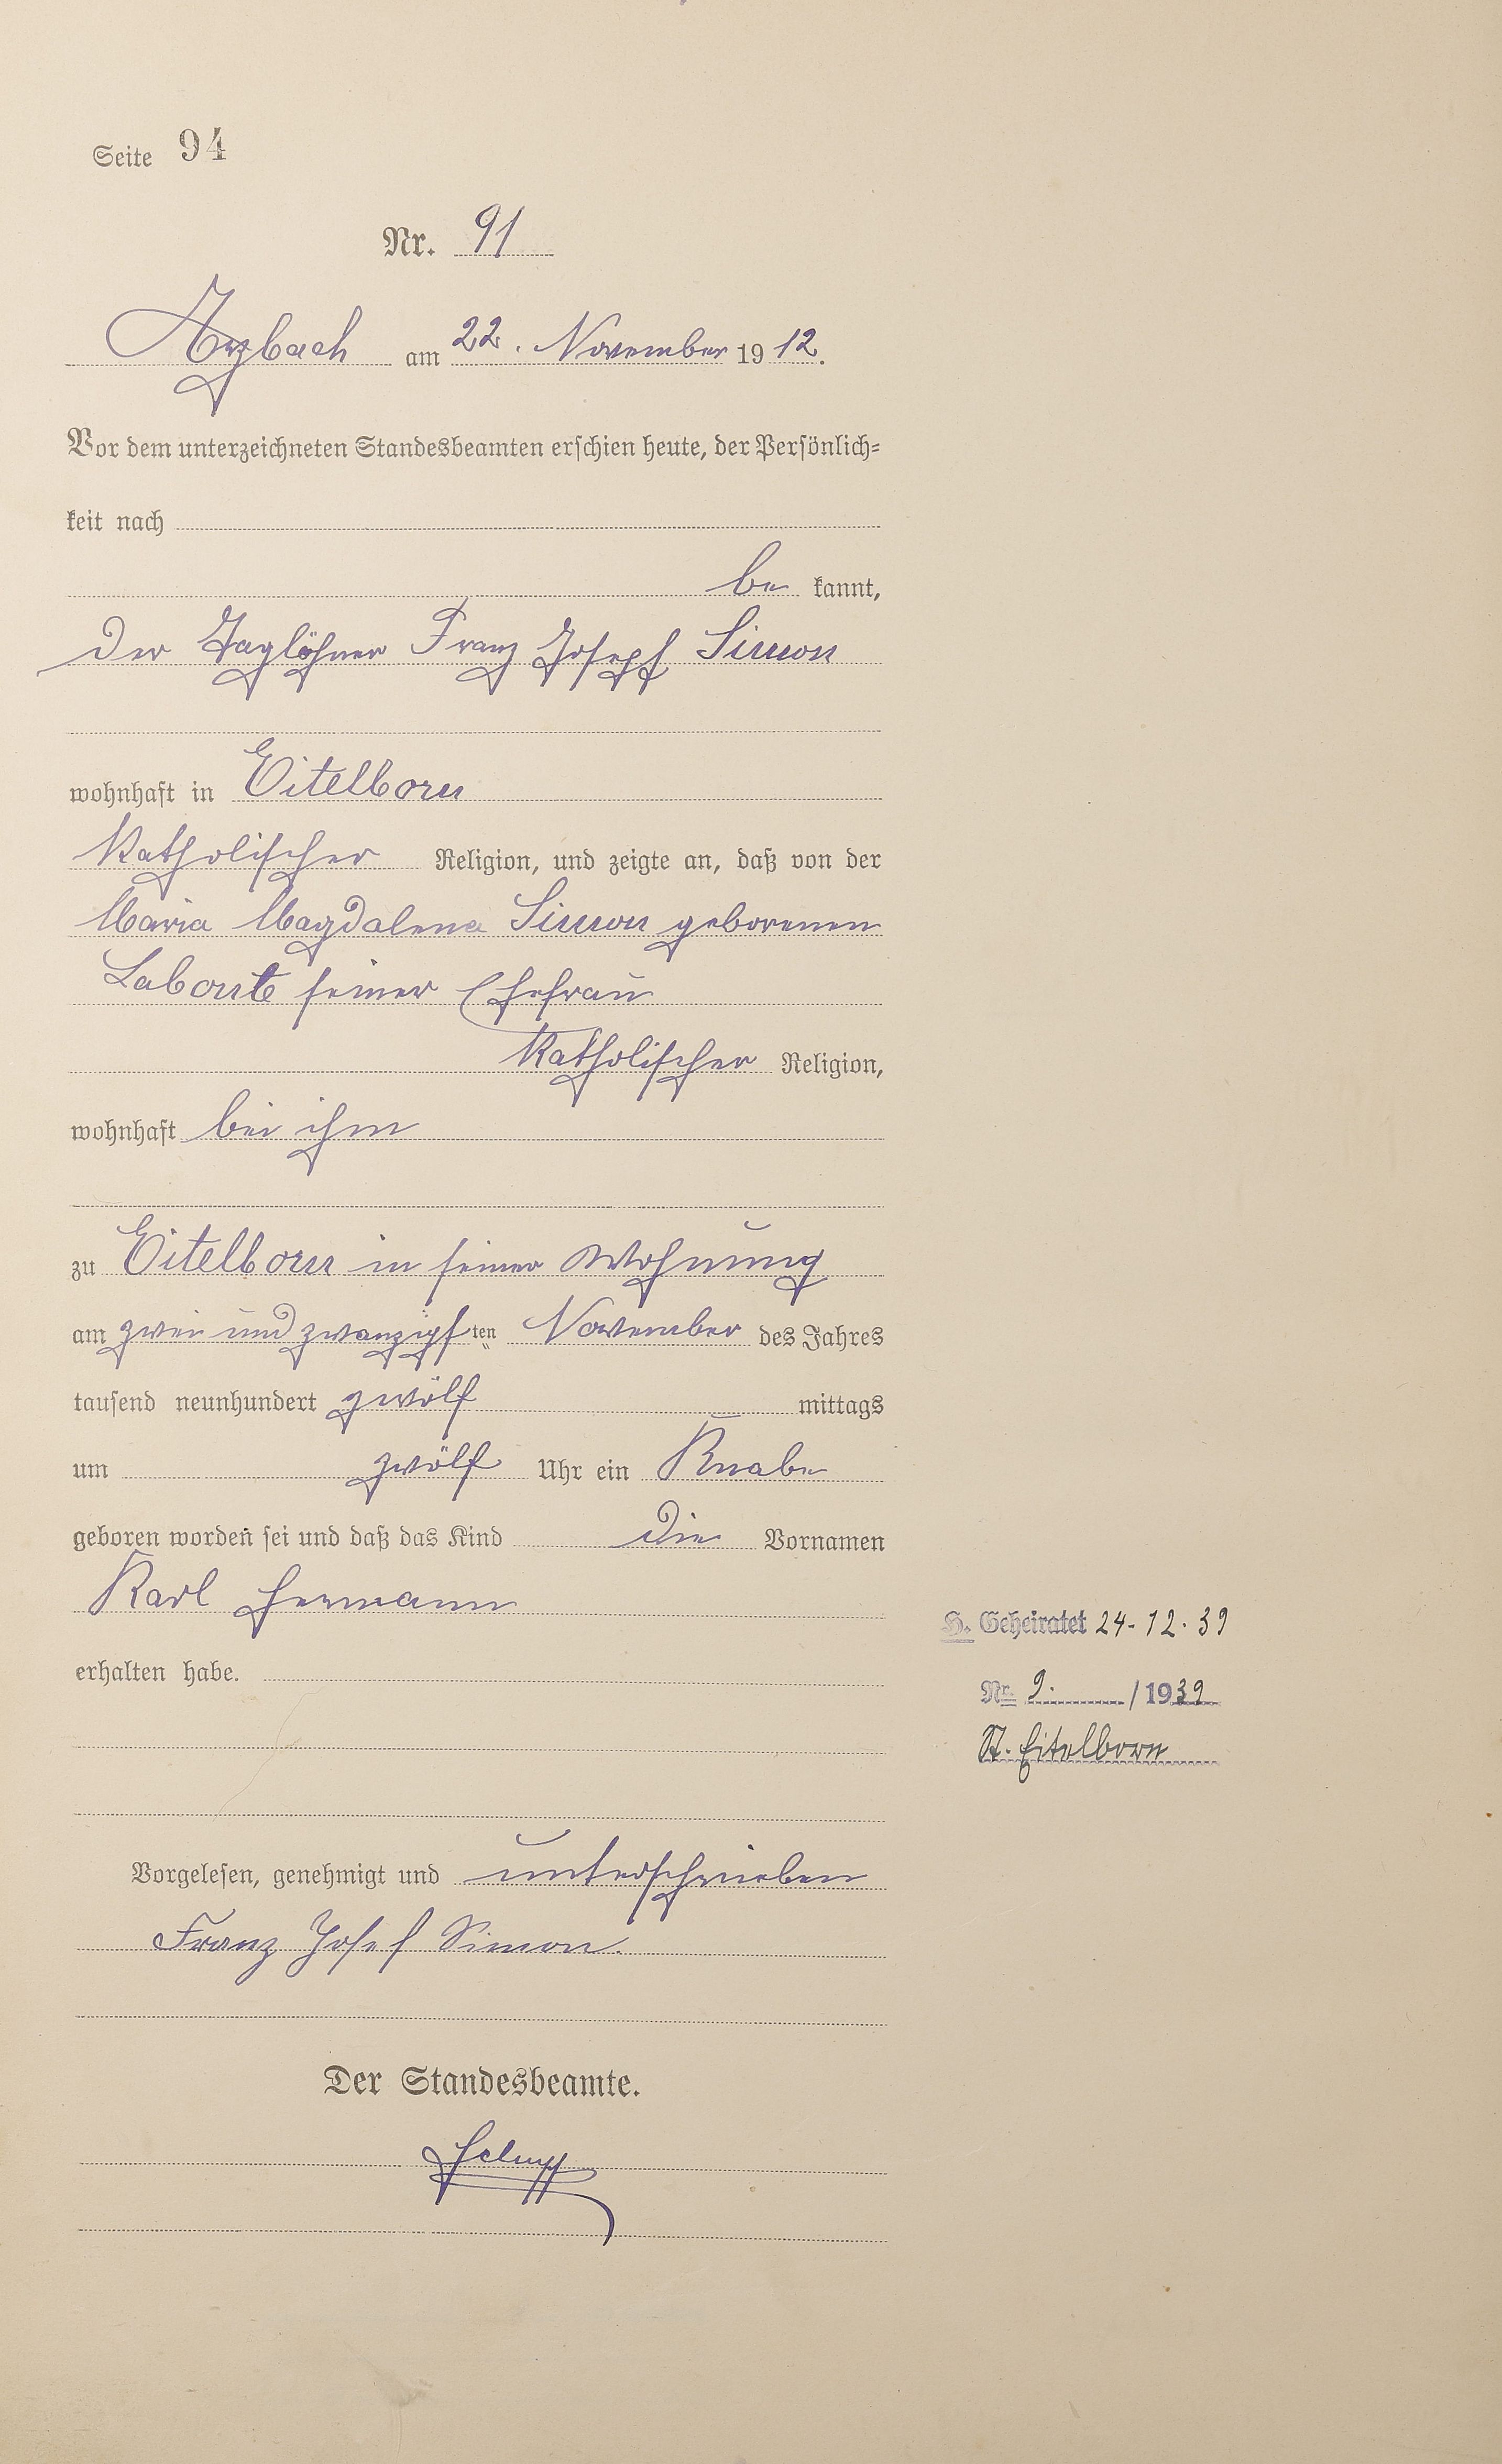 Seite 94
Nr. 91
Arzbach am 22. November 1912.
Vor dem unterzeichneten Standesbeamten erschien heute, der Persönlich-
keit nach
be kannt,
der Taglöhner Franz Josepf Simon
wohnhaft in Eitelborn
katholischer Religion, und zeigte an, daß von der
Maria Magdalena Simon geborenen
Labonte seiner Ehefrau
katholischer Religion,
wohnhaft bei ihm
zu Eitelborn in seiner Wohnung
am zwei und zwanzigsten November des Jahres
tausend neunhundert zwölf mittags
um zwölf Uhr ein Knabe
geboren worden sei und daß das Kind die Vornamen
Karl Hermann
erhalten habe.
H. Geheiratet 24.12.39
Nr. 9. / 1939
St. Eitelborn
Vorgelesen, genehmigt und unterschrieben
Franz Josef Simon.
Der Standesbeamte.